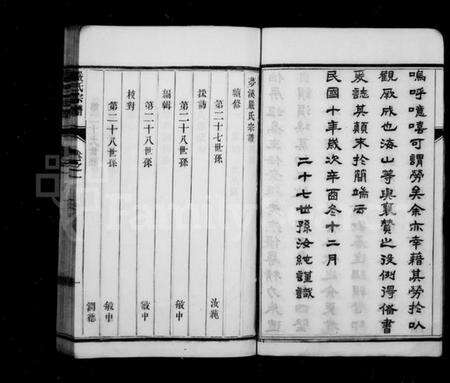 嗚呼噫嘻可謂勞矣余亦幸藉其勞於以
觀厥成也海山等與襄贊之役例得備書
爰誌其顛末於簡端云
民國十年歲次辛酉冬十二月
二十七世孫汝純謹識
嚴氏宗譜
卷之一
夢溪嚴氏宗譜
續修
第二十七世孫 汝純
採訪
第二十八世孫 敏中
編輯
第二十八世孫 敏中
校對
第二十八世孫 敏中
潤德